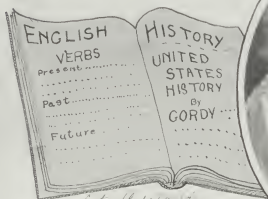 ENGLISH
VERBS
Present
Past
Future
HISTORY
UNITED
STATES
HISTORY
By
GORDY